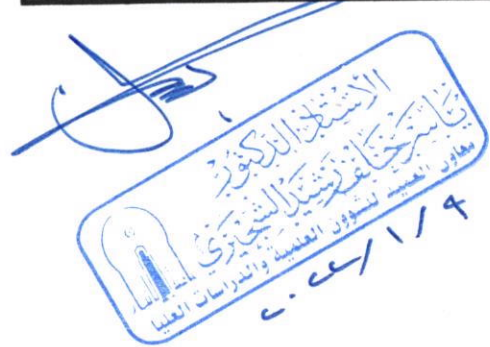 الاستاذ الدكتور
ياسر خلف رشيد الشجيري
معاون العميد للشؤون العلمية والدراسات العليا
٢٠٢٢/١/٩